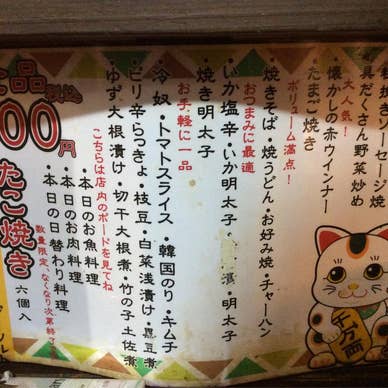 粗挽きソーセージ焼
具だくさん野菜炒め
大人気！
懐かしの赤ウインナー
たまご焼き
ボリューム満点！
焼きそば・焼うどん・お好み焼・チャーハン
おつまみに最適
いか塩辛・いか明太子
明太子
焼き明太子
お手軽に一品
冷奴・トマトスライス・韓国のり・キムチ
ピリ辛らっきょ・枝豆・白菜浅漬け・昆豆煮
ゆず大根漬け・切干大根煮・竹の子土佐煮
こちらは店内のボードを見てね
本日のお魚料理
本日のお肉料理
本日の日替わり料理
数量限定、なくなり次第終了
品
税込
00円
たこ焼き
六個入
千万両